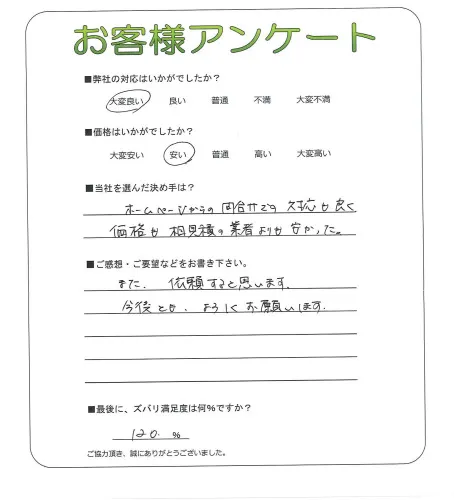 お客様アンケート
■弊社の対応はいかがでしたか?
大変良い 良い 普通 不満 大変不満
■価格はいかがでしたか?
大変安い 安い 普通 高い 大変高い
■当社を選んだ決め手は?
ホームページからの問合せでの対応も良く
価格も相見積の業者よりも安かった。
■ご感想・ご要望などをお書き下さい。
また、依頼すると思います。
今後とも、よろしくお願いします。
■最後に、ズバリ満足度は何%ですか?
120. %
ご協力頂き、誠にありがとうございました。